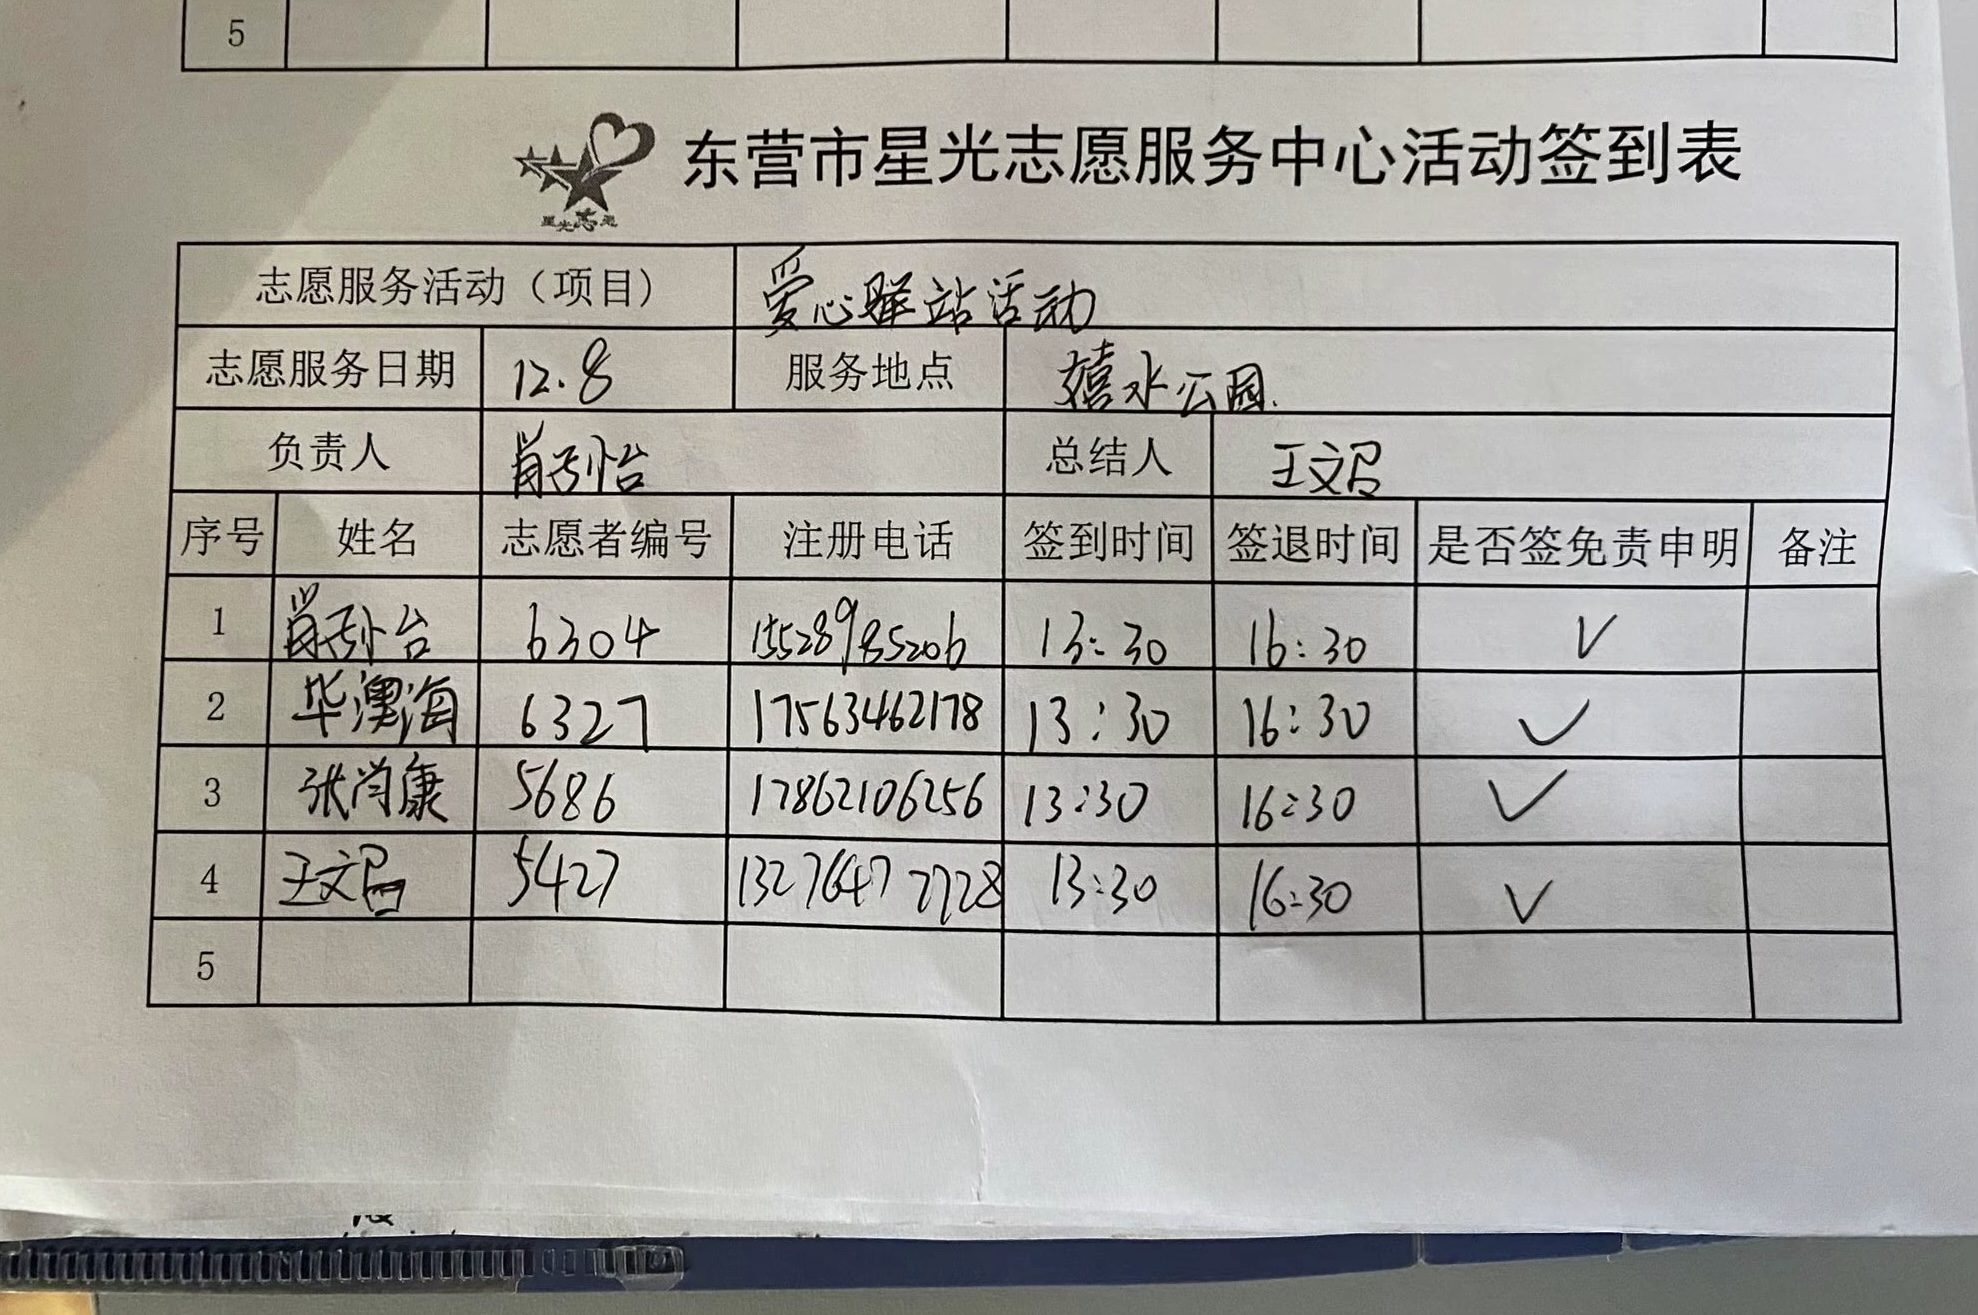 5
星光志愿
东营市星光志愿服务中心活动签到表
志愿服务活动（项目） 爱心驿站活动
志愿服务日期 12.8 服务地点 嬉水公园.
负责人 总结人 王文吕
序号 姓名 志愿者编号 注册电话 签到时间 签退时间 是否签免责申明 备注
1 6304 15528985206 13:30 16:30 ✓
2 华澳海 6327 17563462178 13:30 16:30 ✓
3 张尚康 5686 17862106256 13:30 16:30 ✓
4 王文吕 5427 13276472728 13:30 16:30 ✓
5